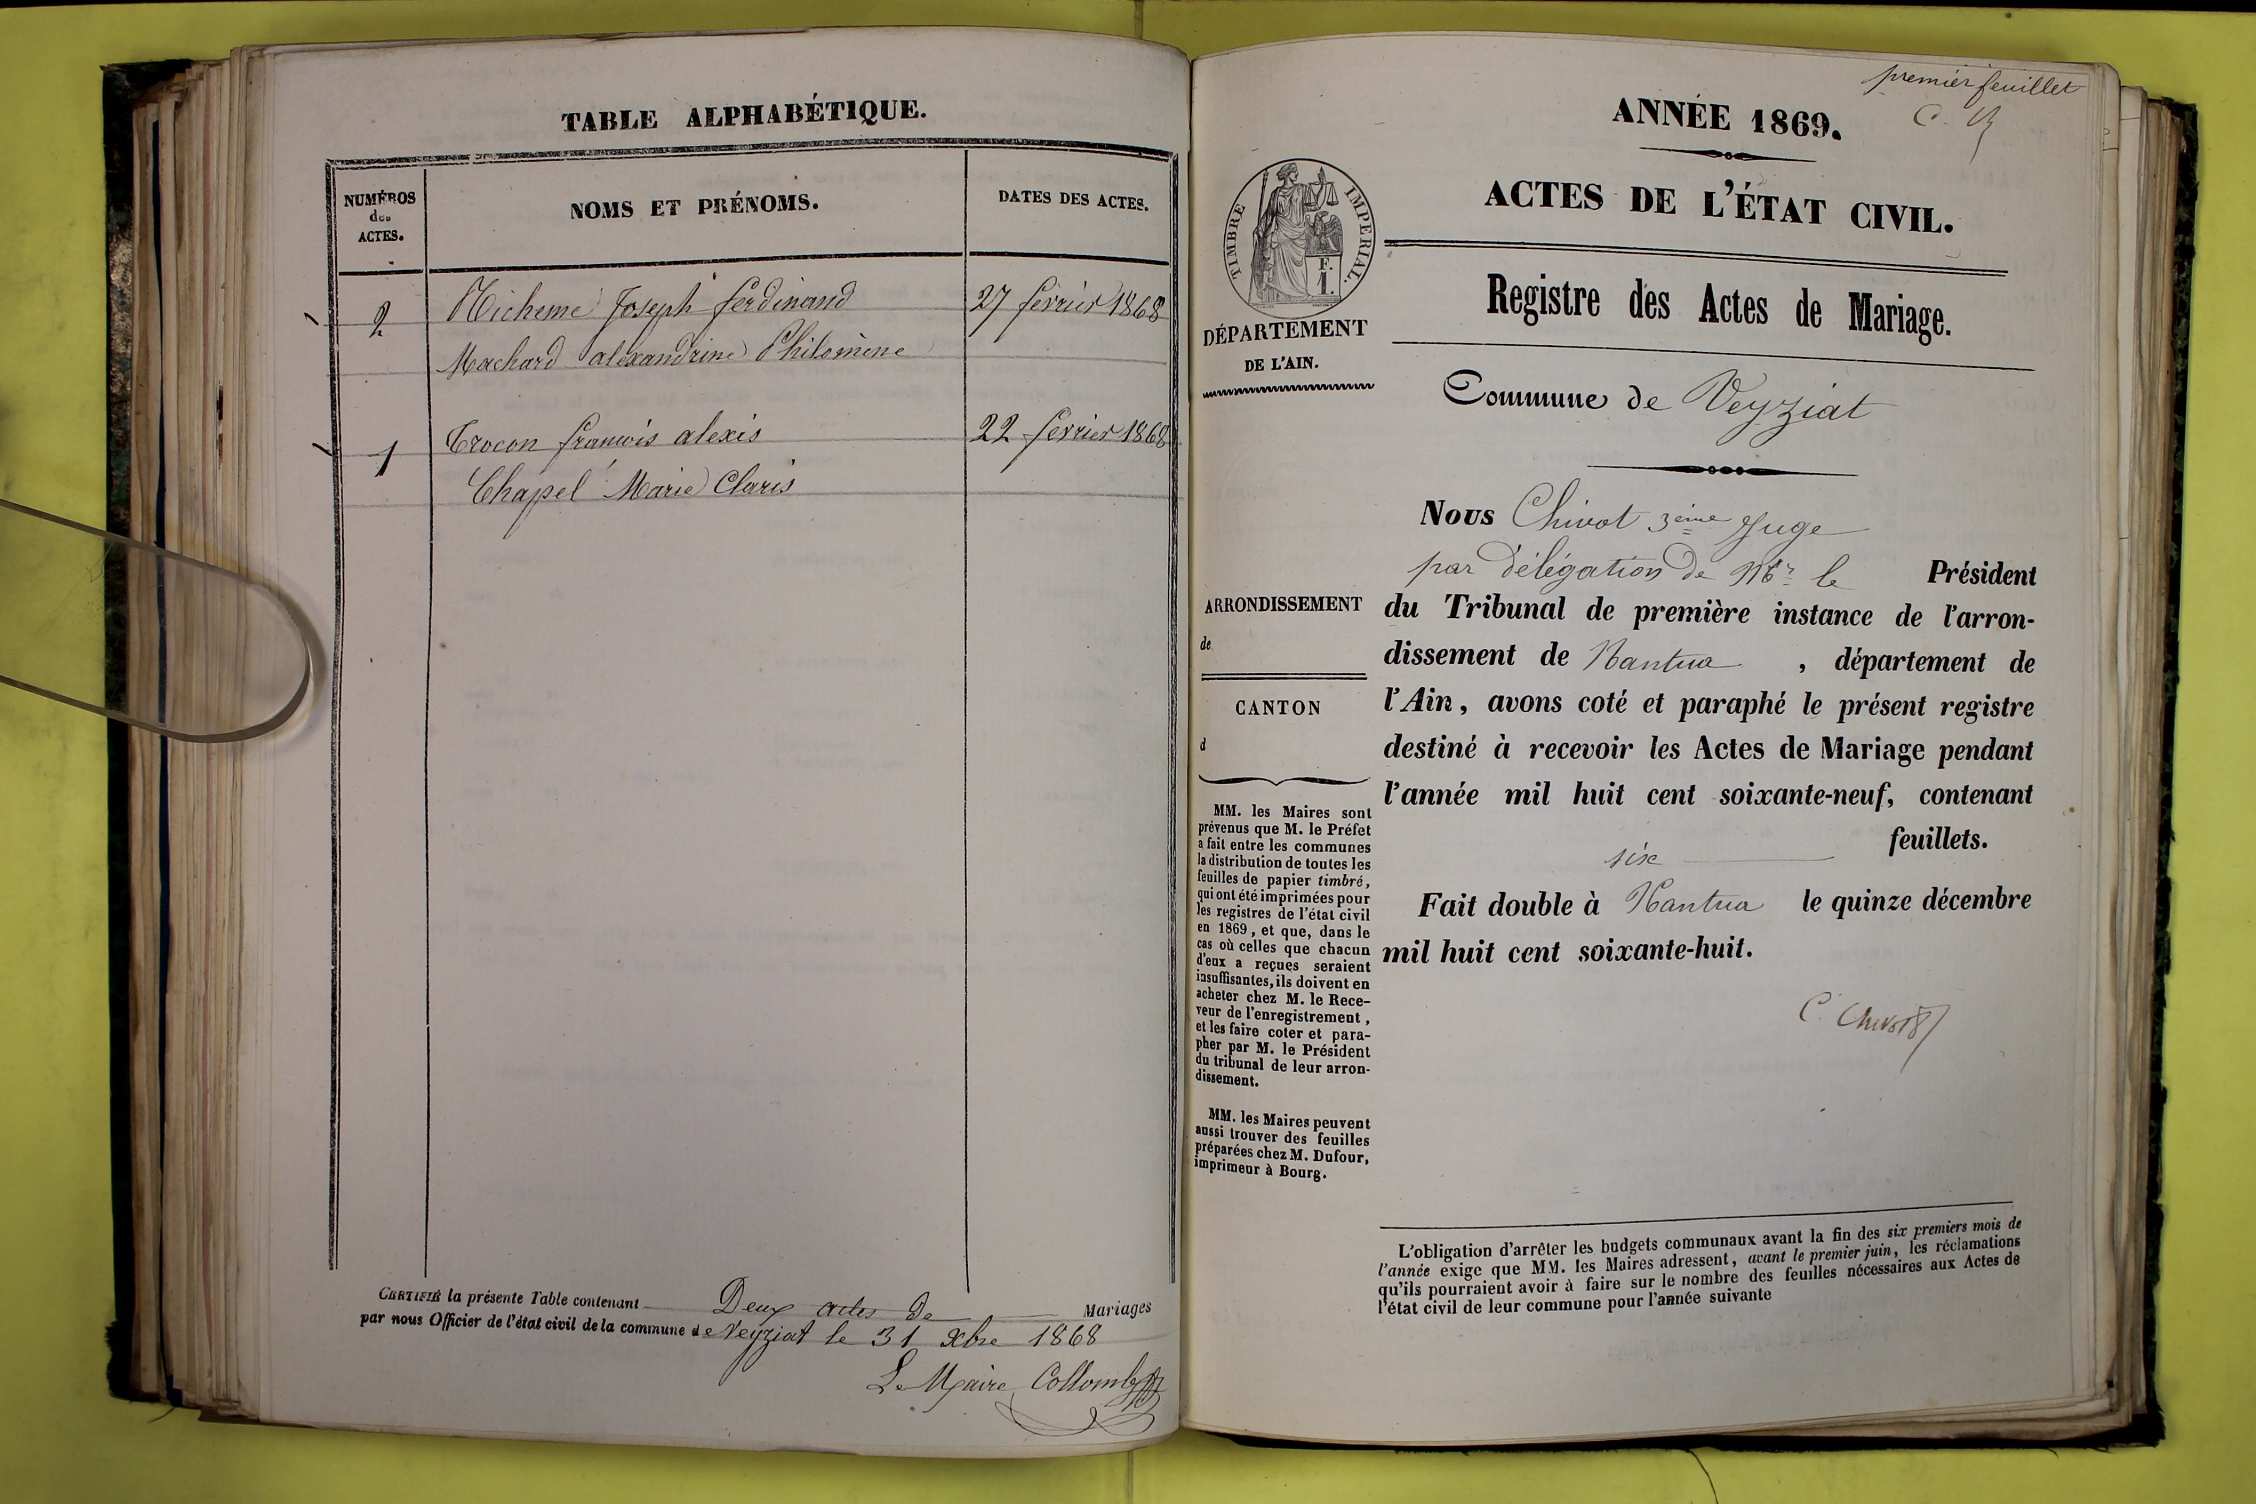 TABLE ALPHABÉTIQUE.
NUMÉROS
des
ACTES.
NOMS ET PRÉNOMS.
DATES DES ACTES.
2
Joseph ferdinand
27 février 1868
Machard alexandrine Philomène
1
Crocon francois alexis
22 février 1868
Chapel Marie Claris
CERTIFIÉ la présente Table contenant Deux actes de Mariages
par nous Officier de l'état civil de la commune de Veyziat le 31 xbre 1868
Le Maire Collomb
premier feuillet
ANNÉE 1869.
ACTES DE L'ÉTAT CIVIL.
TIMBRE IMPERIAL.
F.
1.
Registre des Actes de Mariage.
DÉPARTEMENT
DE L'AIN.
Commune de Veyziat
Nous Chivot 3ème Juge
par Délégation de Mr le Président
du Tribunal de première instance de l'arron-
dissement de Nantua , département de
l'Ain, avons coté et paraphé le présent registre
destiné à recevoir les Actes de Mariage pendant
l'année mil huit cent soixante-neuf, contenant
six feuillets.
Fait double à Nantua le quinze décembre
mil huit cent soixante-huit.
C. Chivot
ARRONDISSEMENT
de
CANTON
d
MM. les Maires sont
prévenus que M. le Préfet
a fait entre les communes
la distribution de toutes les
feuilles de papier timbré,
qui ont été imprimées pour
les registres de l'état civil
en 1869, et que, dans le
cas où celles que chacun
d'eux a reçues seraient
insuffisantes, ils doivent en
acheter chez M. le Rece-
veur de l'enregistrement,
et les faire coter et para-
pher par M. le Président
du tribunal de leur arron-
dissement.
MM. les Maires peuvent
aussi trouver des feuilles
préparées chez M. Dufour,
imprimeur à Bourg.
L'obligation d'arrêter les budgets communaux avant la fin des six premiers mois de
l'année exige que MM. les Maires adressent, avant le premier juin, les réclamations
qu'ils pourraient avoir à faire sur le nombre des feuilles nécessaires aux Actes de
l'état civil de leur commune pour l'année suivante